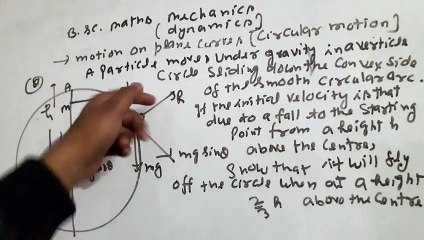 B.SC. maths (mechanics
(dynamics)
→ motion on plane curves [circular motion]
(8) A particle moves under gravity in a vertical
circle sliding down the convex side
of the smooth circular arc.
If the initial velocity is that
due to a fall to the starting
point from a height h
above the centre,
Show that it will fly
off the circle when at a height
2/3 h above the centre
A
m
h
R
mg sinθ
mg